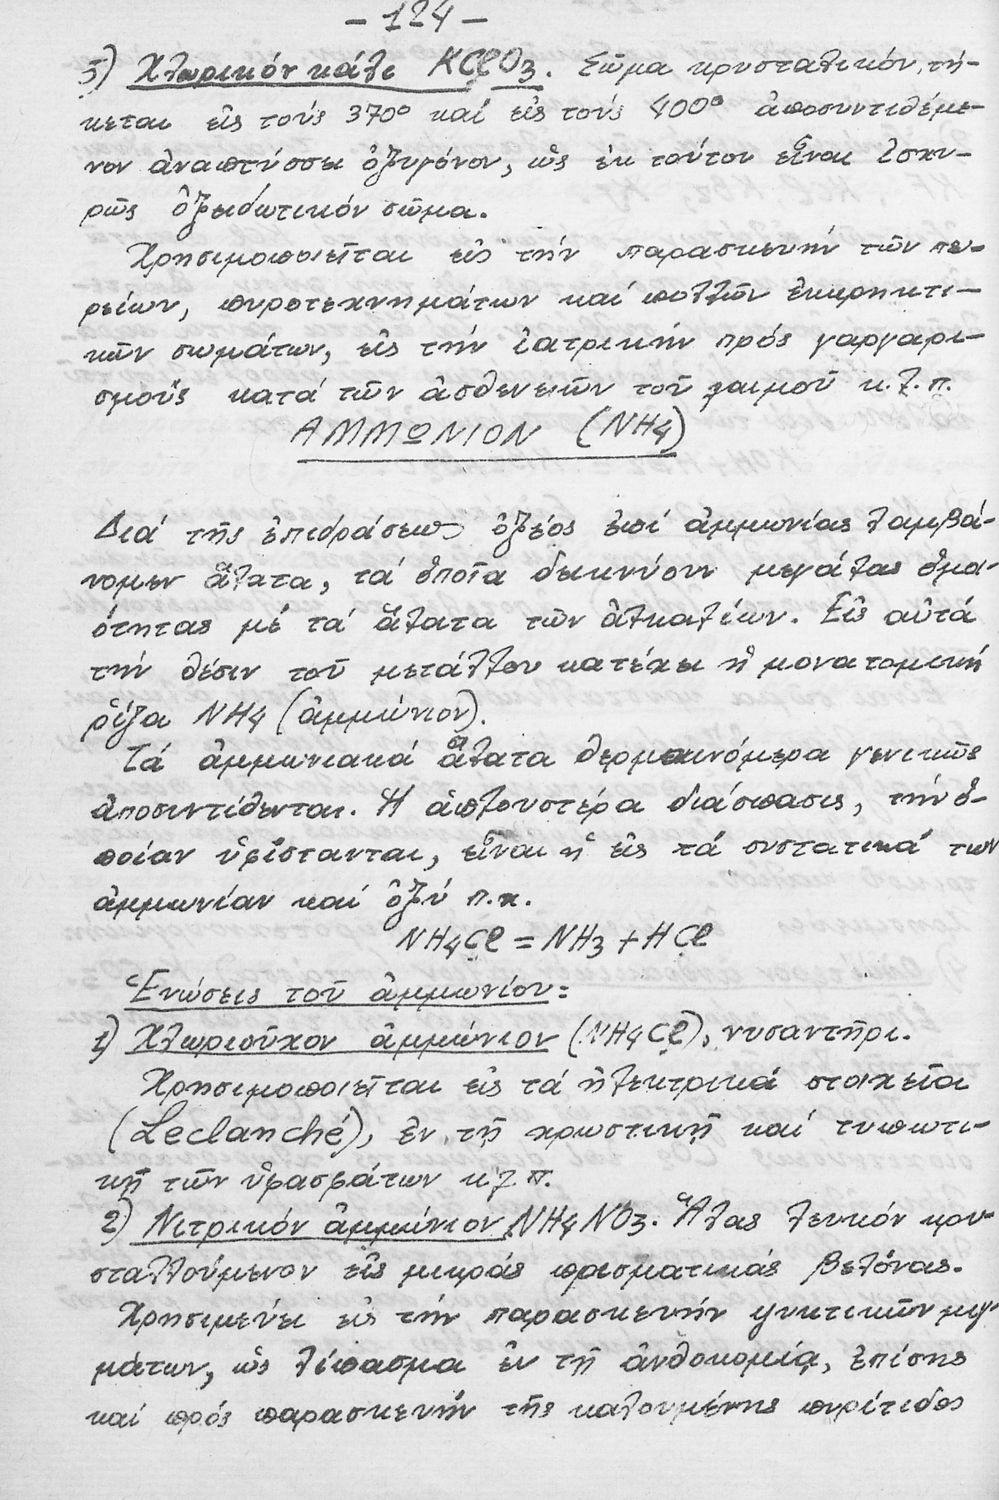 - 124 -
5) Χλωρικόν κάλι KClO3. Σῶμα κρυσταλικόν, τή-
κεται εἰς τούς 370° καί εἰς τούς 400° ἀποσυντιθέμε-
νον ἀναπτύσσει ὀξυγόνον, ὡς ἐκ τούτου εἶναι ἰσχυ-
ρῶς ὀξειδωτικόν σῶμα.
Χρησιμοποιεῖται εἰς τήν παρασκευήν τῶν πυ-
ρείων, πυροτεχνημάτων καί πολλῶν ἐκρηκτι-
κῶν σωμάτων, εἰς τήν ἰατρικήν πρός γαργαρι-
σμούς κατά τῶν ἀσθενειῶν τοῦ λαιμοῦ κ.λ.π.
ΑΜΜΩΝΙΟΝ (NH4)
Διά τῆς ἐπιδράσεως ὀξέος ἐπί ἀμμωνίας λαμβά-
νομεν ἅλατα, τά ὁποῖα δεικνύουν μεγάλας ὁμοι-
ότητας μέ τά ἅλατα τῶν ἀλκαλίων. Εἰς αὐτά
τήν θέσιν τοῦ μετάλλου κατέχει ἡ μονατομική
ρίζα NH4 (ἀμμώνιον).
Τά ἀμμωνιακά ἅλατα θερμαινόμενα γενικῶς
ἀποσυντίθενται. Ἡ ἁπλουστέρα διάσπασις, τήν ὁ-
ποίαν ὑφίστανται, εἶναι ἡ εἰς τά συστατικά των
ἀμμωνίαν καί ὀξύ π.χ.
NH4Cl = NH3 + HCl
Ἑνώσεις τοῦ ἀμμωνίου:
1) Χλωριοῦχον ἀμμώνιον (NH4Cl), νυσαντῆρι.
Χρησιμοποιεῖται εἰς τά ἠλεκτρικά στοιχεῖα
(Leclanché), ἐν τῇ χρωστικῇ καί τυπωτι-
κῇ τῶν ὑφασμάτων κ.λ.π.
2) Νιτρικόν ἀμμώνιον NH4NO3. Ἅλας λευκόν κρυ-
σταλλούμενον εἰς μικράς πρισματικάς βελόνας.
Χρησιμεύει εἰς τήν παρασκευήν ψυκτικῶν μιγ-
μάτων, ὡς λίπασμα ἐν τῇ ἀνθοκομίᾳ, ἐπίσης
καί πρός παρασκευήν τῆς καλουμένης πυρίτιδος